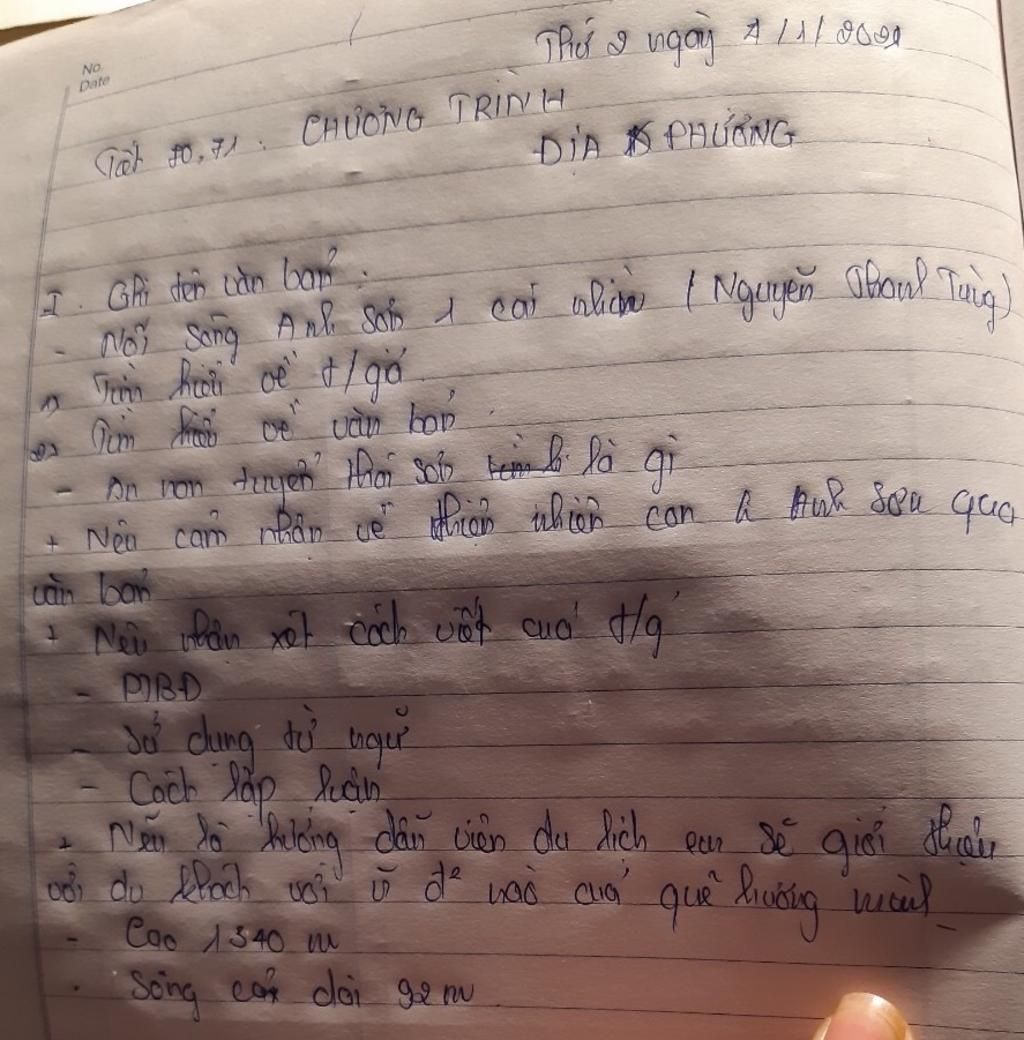 No.
Date
Thứ 2 ngày 4/1/2021
Tiết 70,71. CHƯƠNG TRÌNH
ĐỊA PHƯƠNG
I. Ghi tên văn bản:
- Nơi sông Anh Sơn 1 cái nhìn (Nguyễn Thanh Tùng)
1) Tìm hiểu về t/giả
2) Tìm hiểu về văn bản.
- truyền là gì
+ Nêu cảm nhận về thiên nhiên con Anh Sơn qua
văn bản
+ Nêu nhận xét cách viết của t/g
- PTBĐ
- Sử dụng từ ngữ
- Cách lập luận
+ Nếu là hướng dẫn viên du lịch em sẽ giới thiệu
với du khách với nào của quê hương mình
- Cao 1340 m
- Sông dài 92 m